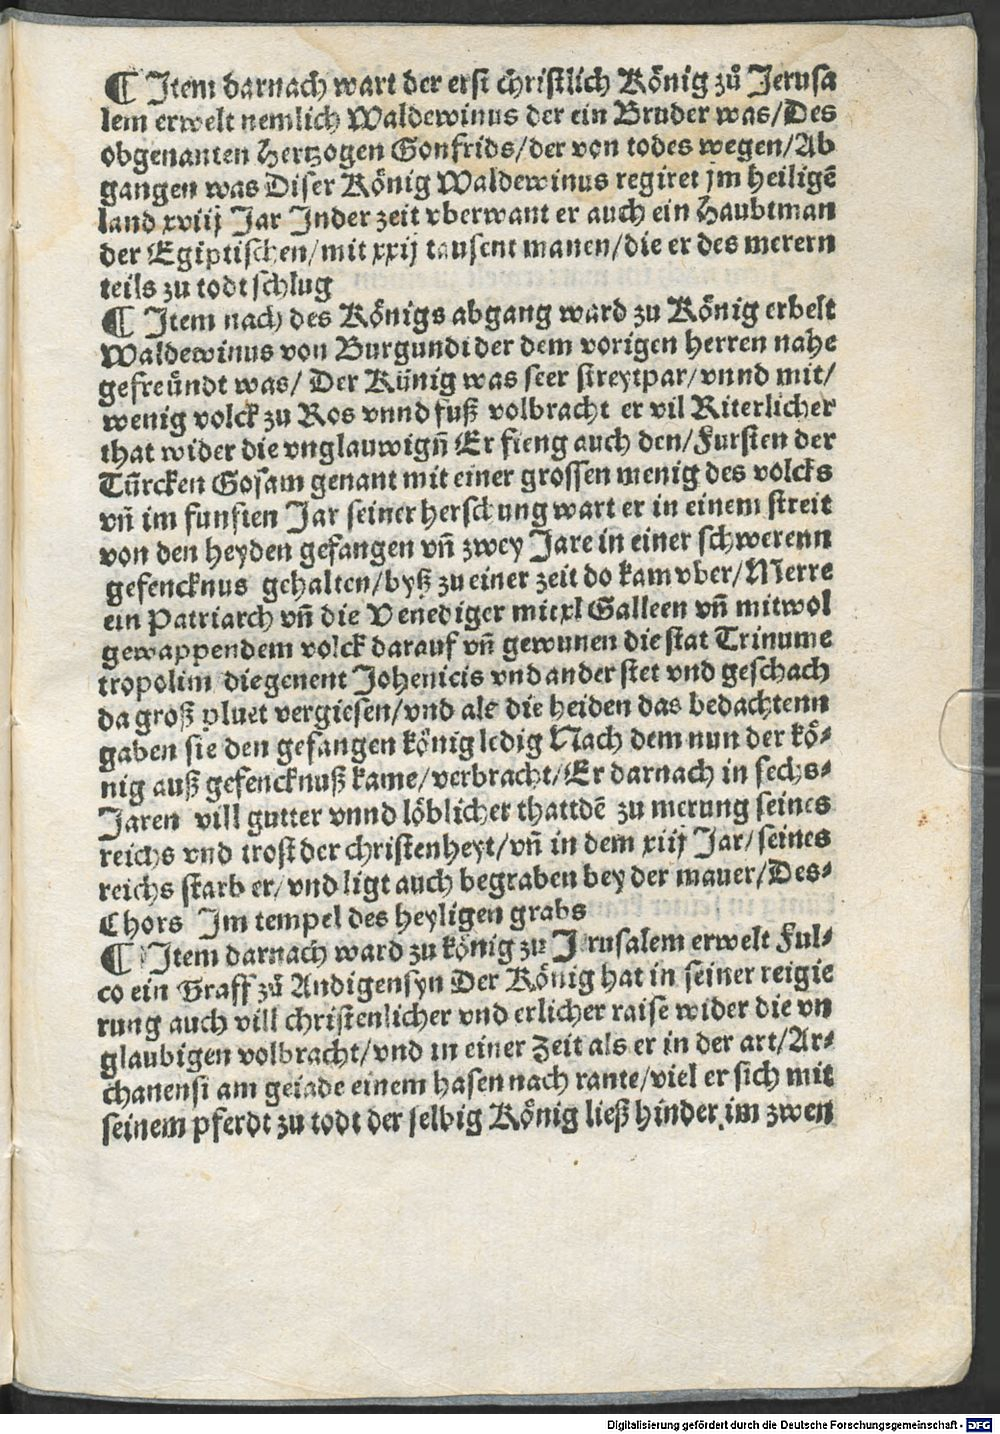 ¶ Item darnach wart der erst christlich König zů Jerusa
lem erwelt nemlich Waldewinus der ein Bruder was/Des
obgenanten Hertzogen Gonfrids/der von todes wegen/Ab
gangen was Diser König Waldewinus regiret jm heiligē
land xviij Jar Inder zeit vberwant er auch ein Haubtman
der Egiptischen/mit xxij tausent manen/die er des merern
teils zu todt schlug
¶ Item nach des Königs abgang ward zu König erbelt
Waldewinus von Burgundi der dem vorigen herren nahe
gefreündt was/ Der Künig was seer streytpar/vnnd mit/
wenig volck zu Ros vnnd fuß volbracht er vil Riterlicher
that wider die vnglauwign̄ Er fieng auch den/Fursten der
Türcken Gosam genant mit einer grossen menig des volcks
vn̄ im funften Jar seiner herschung wart er in einem streit
von den heyden gefangen vn̄ zwey Jare in einer schwerenn
gefencknus gehalten/byß zu einer zeit do kam vber/Merre
ein Patriarch vn̄ die Venediger mit xl Galleen vn̄ mitwol
gewappendem volck darauf vn̄ gewunen die stat Trinume
tropolim die genent Johenicis vnd ander stet vnd geschach
da groß pluet vergiesen/vnd als die heiden das bedachtenn
gaben sie den gefangen könig ledig Nach dem nun der kö⸗
nig auß gefencknuß kame/verbracht/Er darnach in sechs⸗
Jaren vill gutter vnnd löblicher thattdē zu merung seines
reichs vnd trost der christenheyt/vn̄ in dem xiij Jar/seines
reichs starb er/vnd ligt auch begraben bey der mauer/Des⸗
Chors Im tempel des heyligen grabs
¶ Item darnach ward zu könig zu Jerusalem erwelt Ful⸗
co ein Graff zů Andigensyn Der König hat in seiner reigie
rung auch vill christenlicher vnd erlicher raise wider die vn
glaubigen volbracht/vnd in einer Zeit als er in der art/Ar⸗
chanensi am geiade einem hasen nach rante/viel er sich mit
seinem pferdt zu todt der selbig König ließ hinder im zwen
Digitalisierung gefördert durch die Deutsche Forschungsgemeinschaft - DFG